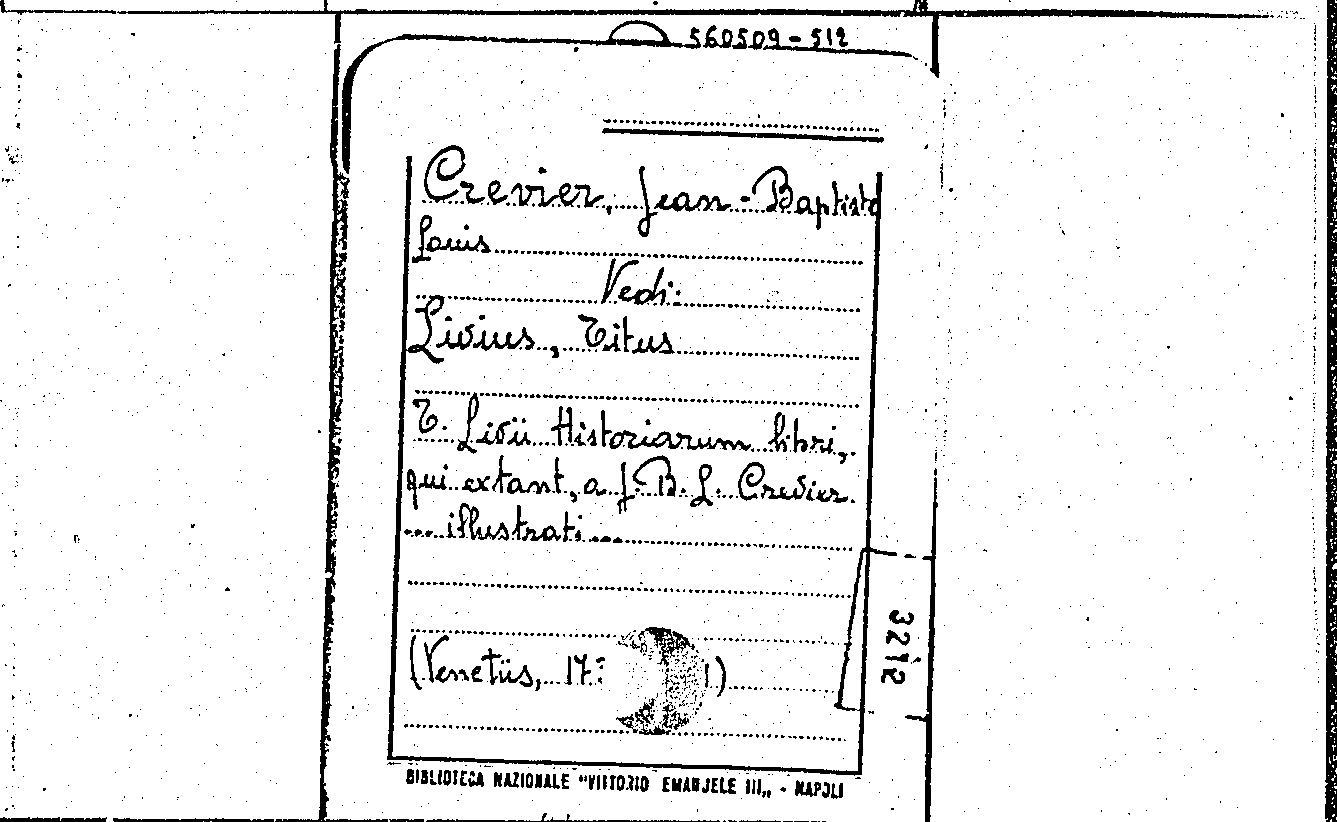 560509-512
Crevier, Jean-Baptiste
Louis
Vedi:
Livius, Titus
T. Livii Historiarum libri,
qui extant, a J. B. L. Crevier.
... illustrati ...
(Venetiis, 17
3212
BIBLIOTECA NAZIONALE "VITTORIO EMANUELE III„ - NAPOLI